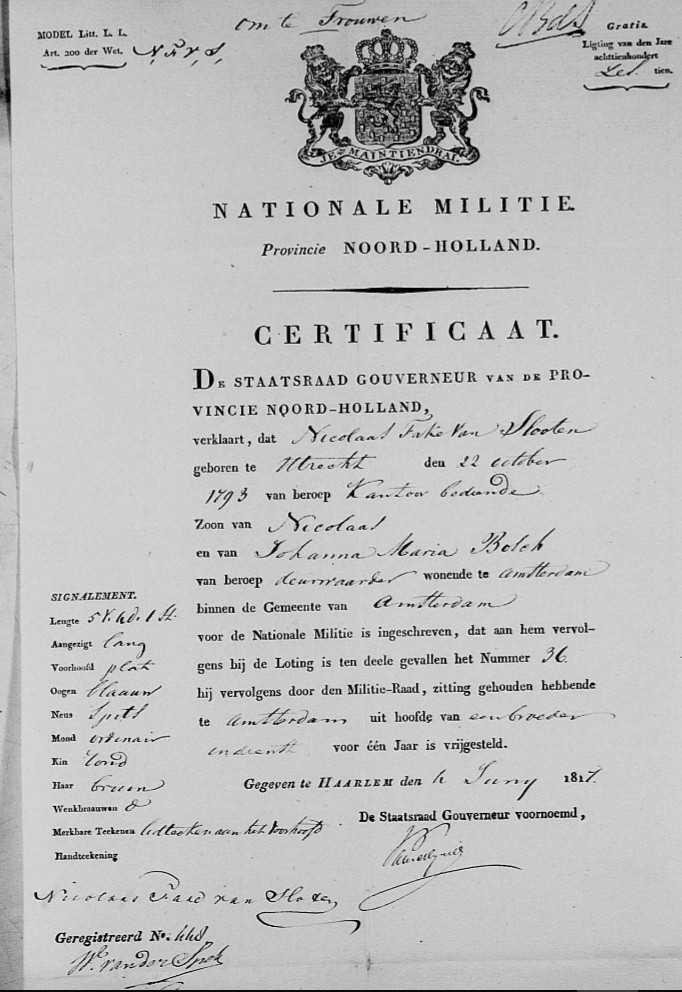 MODEL Litt. L. L.
Art. 200 der Wet.
om te Trouwen
Gratis.
Ligting van den Jare
achttienhonderd
zes tien.
JE MAINTIENDRAI
NATIONALE MILITIE.
Provincie NOORD-HOLLAND.
CERTIFICAAT.
DE STAATSRAAD GOUVERNEUR VAN DE PRO-
VINCIE NOORD-HOLLAND,
verklaart, dat Nicolaas Fake Van Slooten
geboren te Utrecht den 22 october
1793 van beroep Kantoor bediende
Zoon van Nicolaas
en van Johanna Maria Bosch
van beroep deurwaarder wonende te Amsterdam
binnen de Gemeente van Amsterdam
voor de Nationale Militie is ingeschreven, dat aan hem vervol-
gens bij de Loting is ten deele gevallen het Nummer 36
hij vervolgens door den Militie-Raad, zitting gehouden hebbende
te Amsterdam uit hoofde van een broeder
in dienst voor één Jaar is vrijgesteld.
Gegeven te HAARLEM den 4 Juny 1817.
De Staatsraad Gouverneur voornoemd,
SIGNALEMENT.
Lengte 5 V. 4 d. 1 St.
Aangezigt lang
Voorhoofd plat
Oogen blaauw
Neus spits
Mond ordinair
Kin rond
Haar bruin
Wenkbraauwen
Merkbare Teekenen lidteeken aan het voorhoofd
Handteekening
Nicolaas Faae van Sloten
Geregistreerd No. 448
W. van der Spek